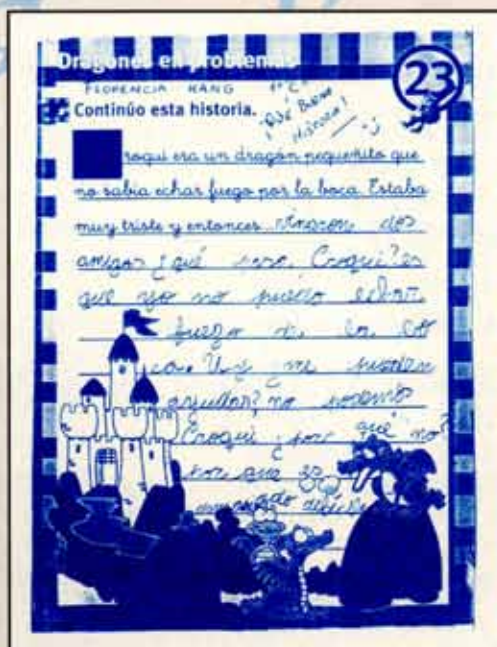 Dragones en problemas
23
FLORENCIA KANG 1º C
Continúo esta historia.
¡Qué Buena Historia!
roqui era un dragón pequeñito que
no sabía echar fuego por la boca. Estaba
muy triste y entonces vinieron dos
amigos ¿qué paso Croqui? es
que yo no puedo echar
fuego de la bo
ca. U. y me pueden
ayudar? no podemos
Croqui ¿por qué no?
por que es